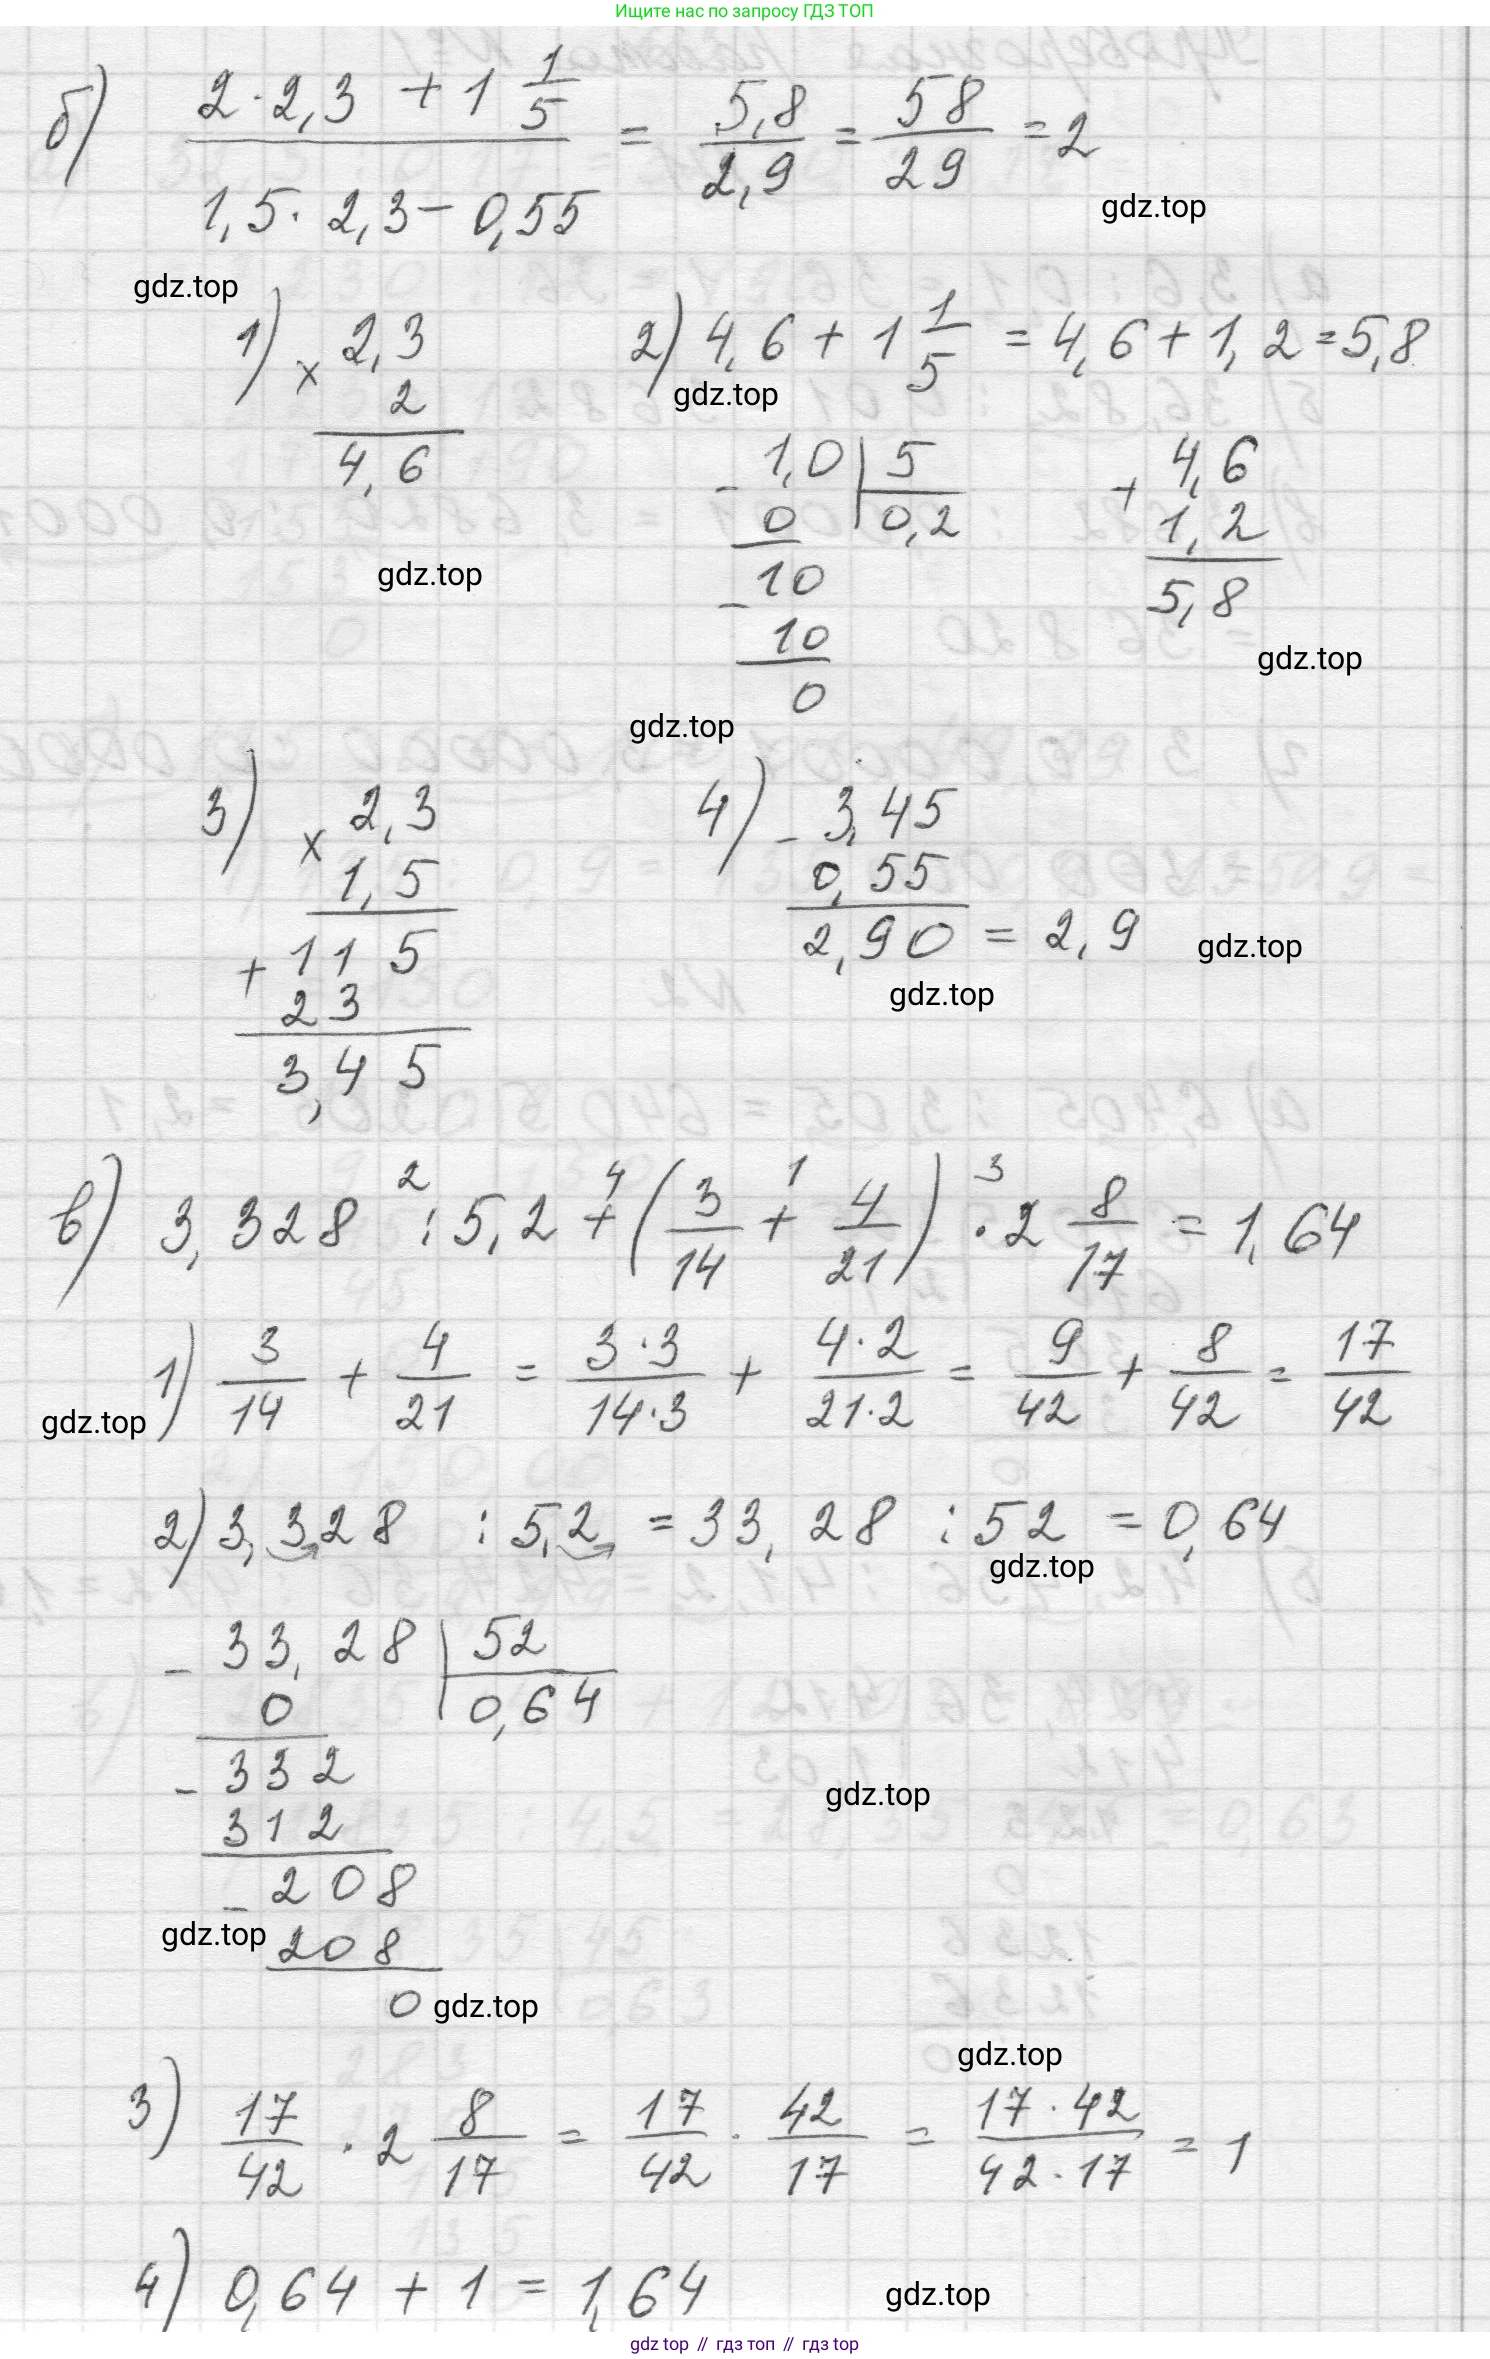 Ищите нас по запросу ГДЗ ТОП
б) (2 · 2,3 + 1 1/5) / (1,5 · 2,3 − 0,55) = 5,8/2,9 = 58/29 = 2
gdz.top
gdz.top
1) × 2,3
2
4,6
gdz.top
2) 4,6 + 1 1/5 = 4,6 + 1,2 = 5,8
gdz.top
− 1,0 | 5
0 | 0,2
− 10
10
0
+ 4,6
1,2
5,8
gdz.top
gdz.top
3) × 2,3
1,5
+ 115
23
3,45
4) − 3,45
0,55
2,90 = 2,9
gdz.top
gdz.top
в) 3,328 :² 5,2 +⁴ (3/14 +¹ 4/21) ·³ 2 8/17 = 1,64
1) 3/14 + 4/21 = 3·3/14·3 + 4·2/21·2 = 9/42 + 8/42 = 17/42
gdz.top
2) 3,328 : 5,2 = 33,28 : 52 = 0,64
gdz.top
− 33,28 | 52
0 | 0,64
− 332
312
gdz.top
− 208
gdz.top
208
0
gdz.top
gdz.top
3) 17/42 · 2 8/17 = 17/42 · 42/17 = 17·42/42·17 = 1
4) 0,64 + 1 = 1,64
gdz.top
gdz top // гдз топ // gdz top